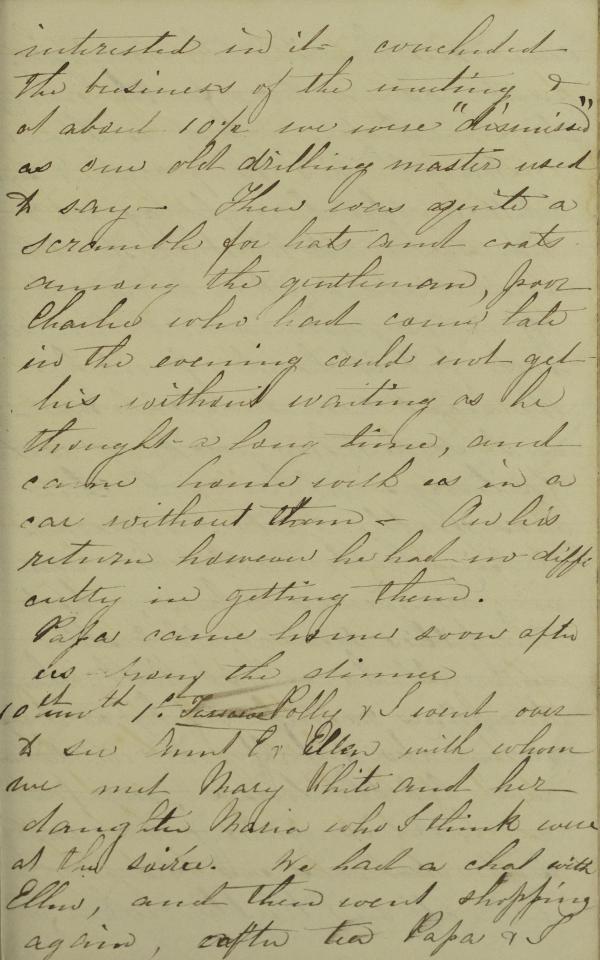 interested in it - concluded
the business of the meeting &
at about 10½ we were "dismissed"
as our old drilling master used
to say - There was quite a
scramble for hats and coats
among the gentleman, poor
Charlie who had come late
in the evening could not get
his without waiting as he
thought a long time, and
came home with us in a
car without them - On his
return however he had no diffi
culty in getting them.
Papa came home soon after
us from the dinner
10th mth 1st. Polly & I went over
to see Aunt E & Ellen with whom
we met Mary White and her
daughter Maria who I think were
at the soirée. We had a chat with
Ellen, and then went shopping
again, after tea Papa & I